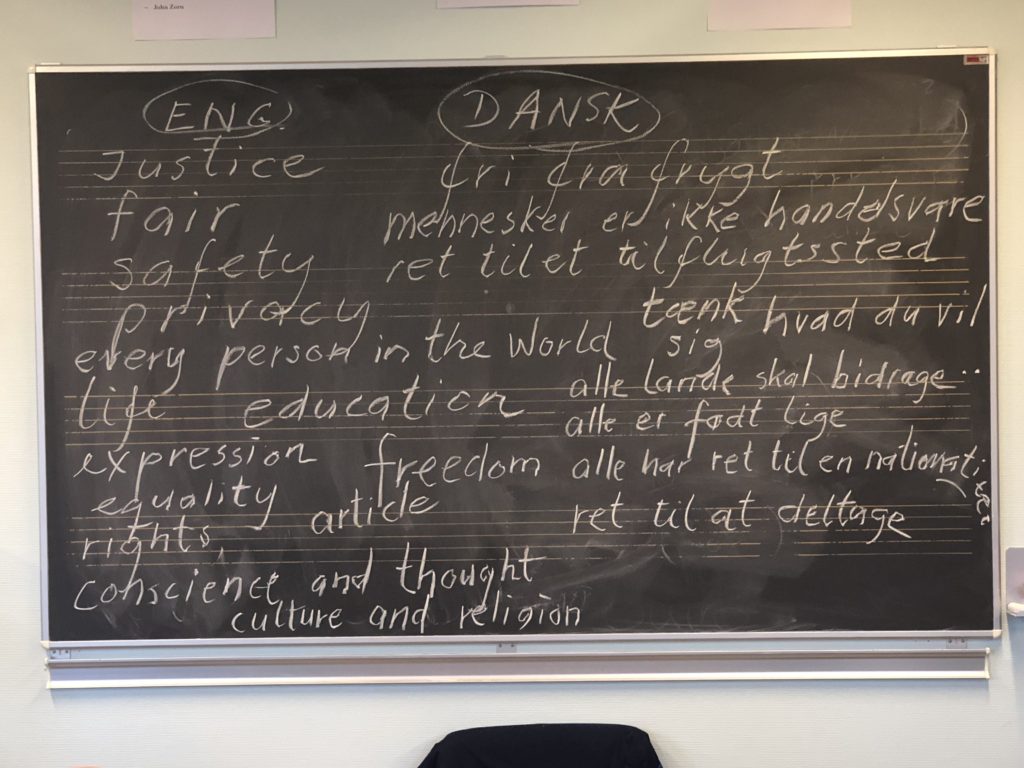 – John Zorn
ENG.
Justice
fair
safety
privacy
every person in the World
life education
expression freedom
equality article
rights,
conscience and thought
culture and religion
DANSK
fri fra frygt
mennesker er ikke handelsvare
ret til et tilflugtssted
tænk hvad du vil
sig
alle lande skal bidrage..
alle er født lige
alle har ret til en nationatitet
ret til at deltage